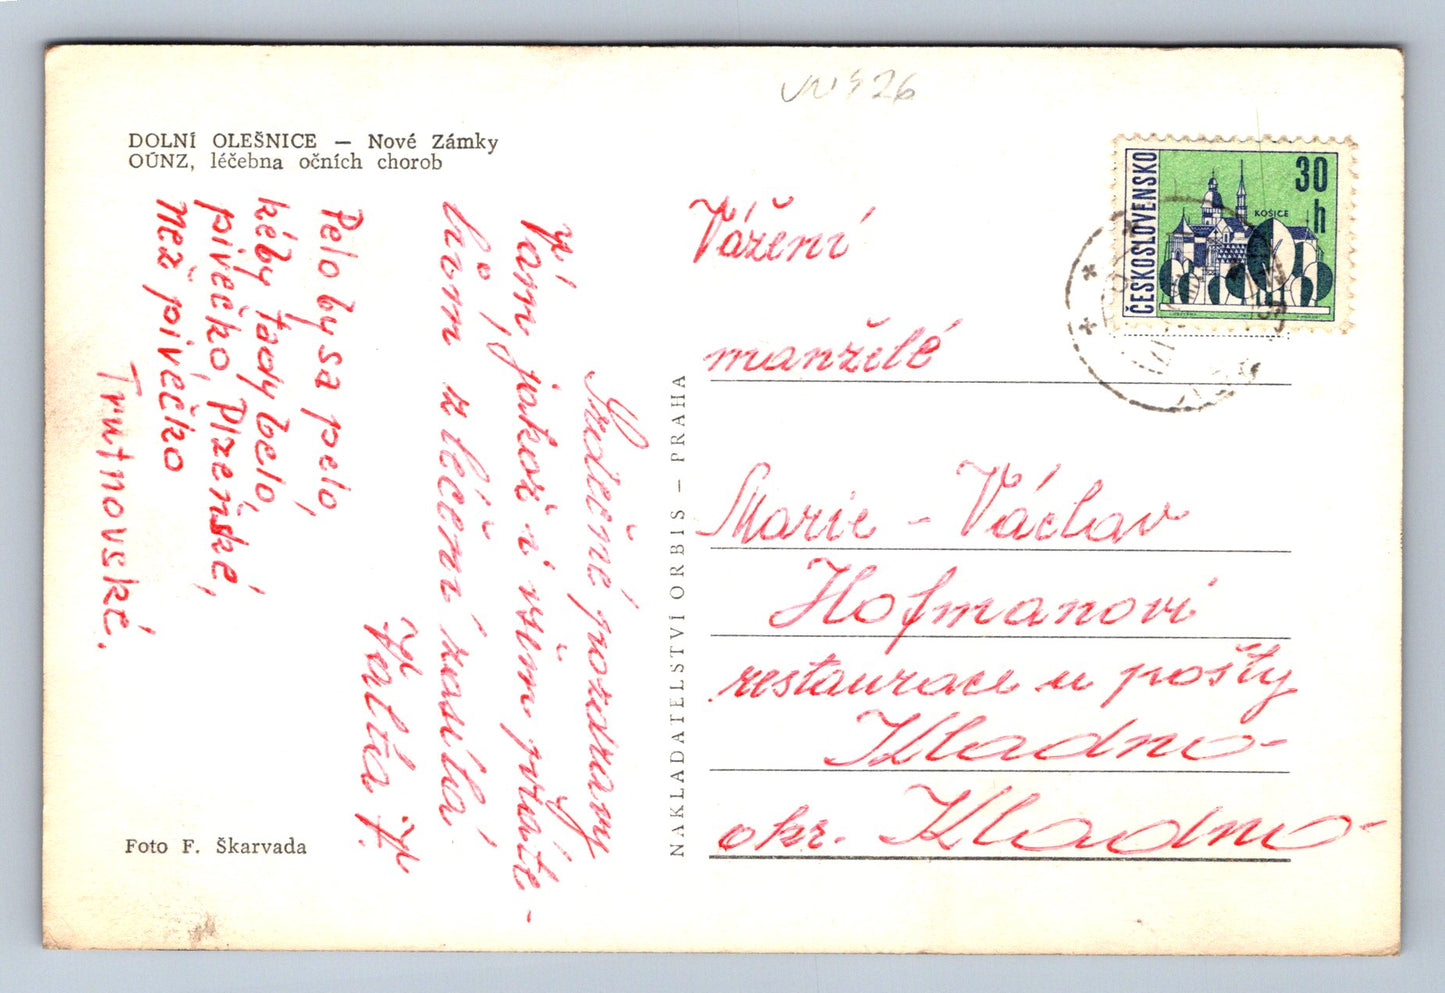 DOLNÍ OLEŠNICE — Nové Zámky
OÚNZ, léčebna očních chorob
Srdečné pozdravy
Vám, jakož i všem přáte-
lům z léčení zasílá
Pelo by sa pelo,
kéby tady belo,
pivečko Plzeňské,
Než pivéčko
Trutnovské.
Foto F. Škarvada
NAKLADATELSTVÍ ORBIS — PRAHA
ČESKOSLOVENSKO
30
h
KOŠICE
Vážení
manželé
Marie - Václav
Hofmanovi
restaurace u pošty
Kladno-
okr. Kladno-